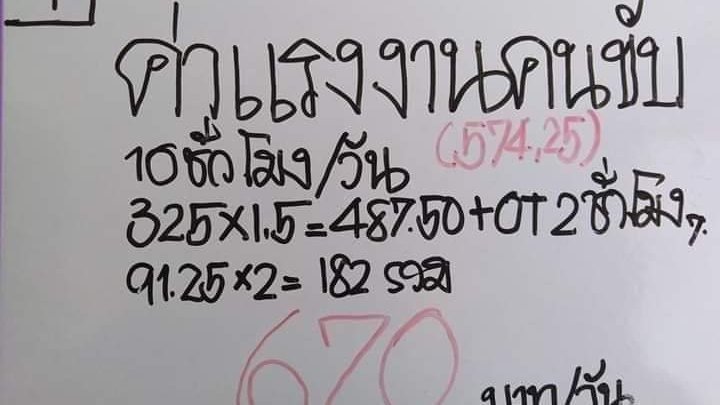 ค่าแรงงานคนขับ
(574.25)
10ชั่วโมง/วัน
325×1.5=487.50+OT 2ชั่วโมง
91.25×2= 182 รวม
670
บาท/วัน